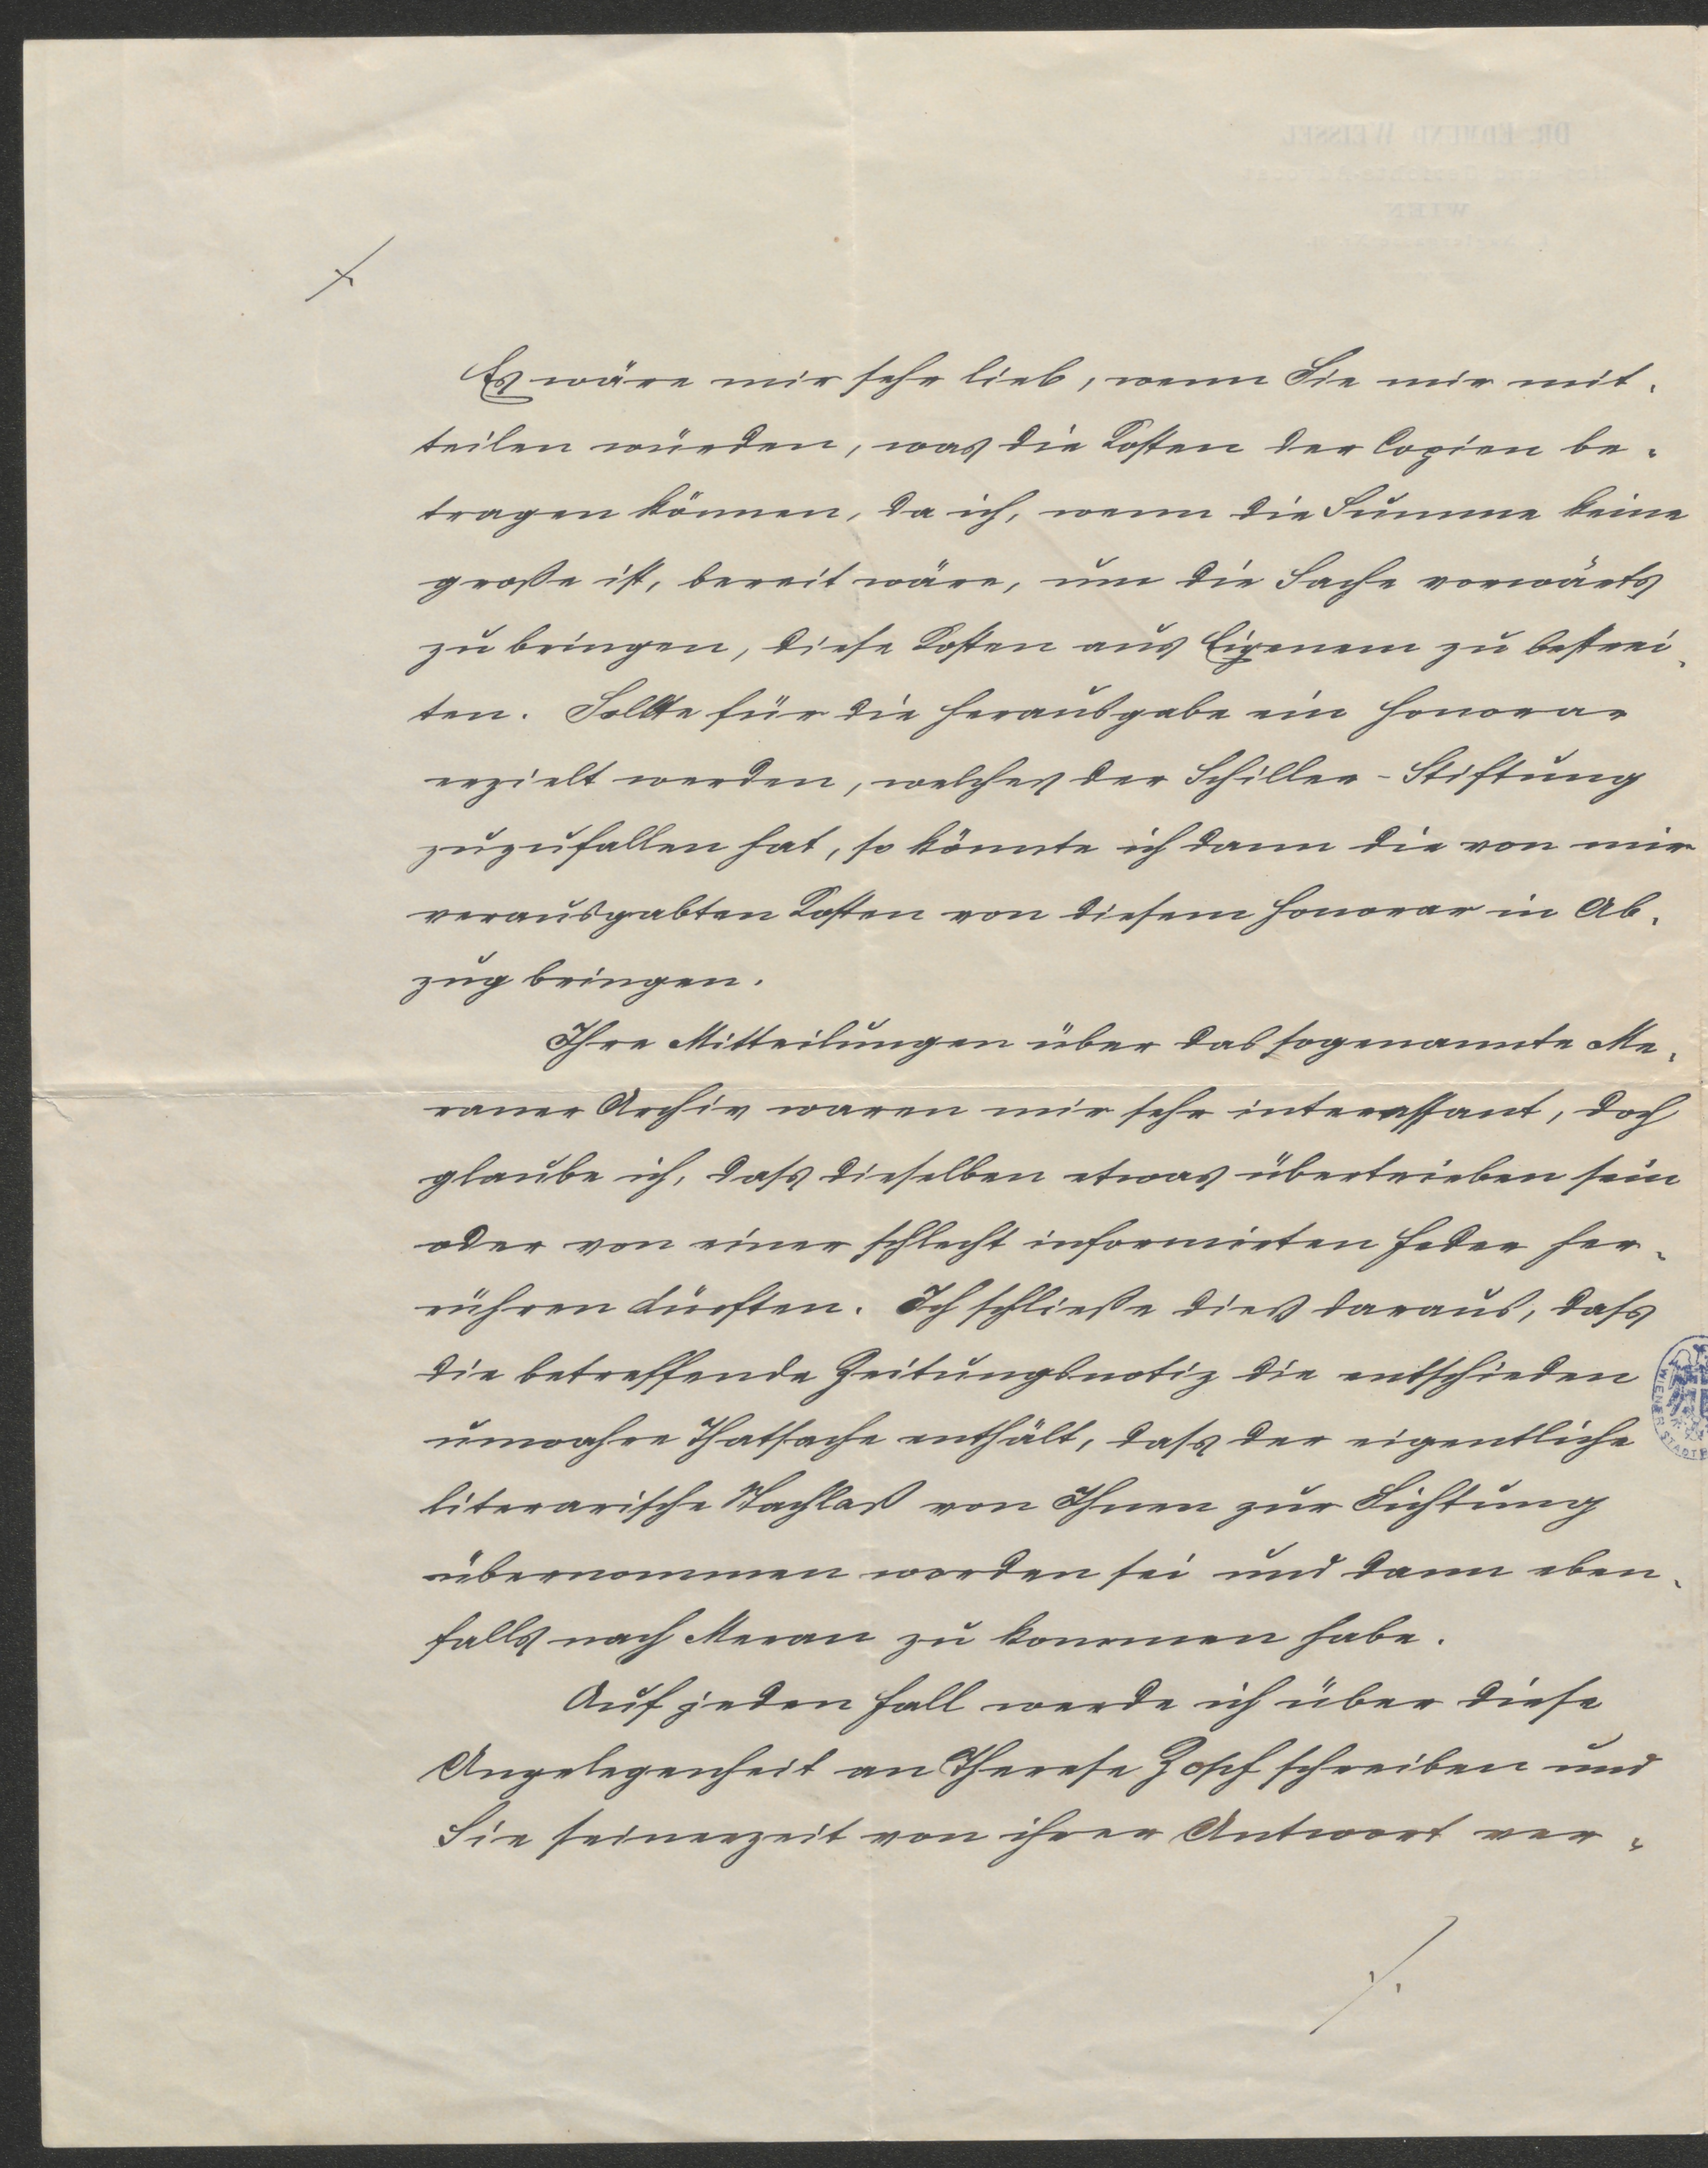 Es wäre mir sehr lieb, wenn Sie mir mit-
teilen würden, was die Kosten der Copien be-
tragen können, da ich, wenn die Summe keine
große ist, bereit wäre, um die Sache vorwärts
zu bringen, diese Kosten aus Eigenem zu bestrei-
ten. Sollte für die Herausgabe ein Honorar
erzielt werden, welches der Schiller-Stiftung
zuzufallen hat, so könnte ich dann die von mir
verausgabten Kosten von diesem Honorar in Ab-
zug bringen.
Ihre Mitteilungen über das sogenannte Me-
raner Archiv waren mir sehr interessant, doch
glaube ich, dass dieselben etwas übertrieben sein
oder von einer schlecht informirten Feder her-
rühren dürften. Ich schließe dieß daraus, dass
die betreffende Zeitungsnotiz die entschieden
unwahre Thatsache enthält, dass der eigentliche
literarische Nachlaß von Ihnen zur Sichtung
übernommen worden sei und dann eben-
falls nach Meran zu kommen habe.
Auf jeden Fall werde ich über diese
Angelegenheit an Therese schreiben und
Sie seinerzeit von ihrer Antwort ver-
./.
DR. EDMUND WEISSEL
WIEN
WIENER STADT